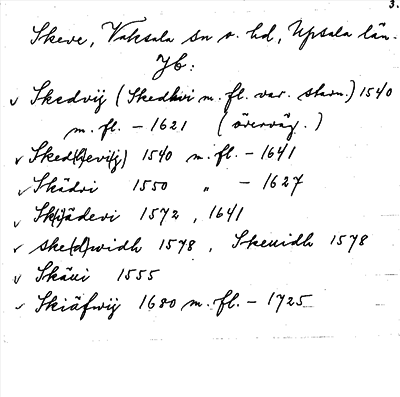 3.
Skeve, Vaksala sn o. hd, Upsala län.
Jb:
v Skedvij (Skedhvi m. fl. var. stavn.) 1540
m. fl. – 1621 (överväg.)
v Sked(h)evi(j) 1540 m. fl. – 1641
v Skädvi 1550 " – 1627
v Sk(i)ädevi 1572, 1641
v Ske(d)widh 1578, Skeuidh 1578
v Skäui 1555
v Skiäfwij 1680 m. fl. – 1725